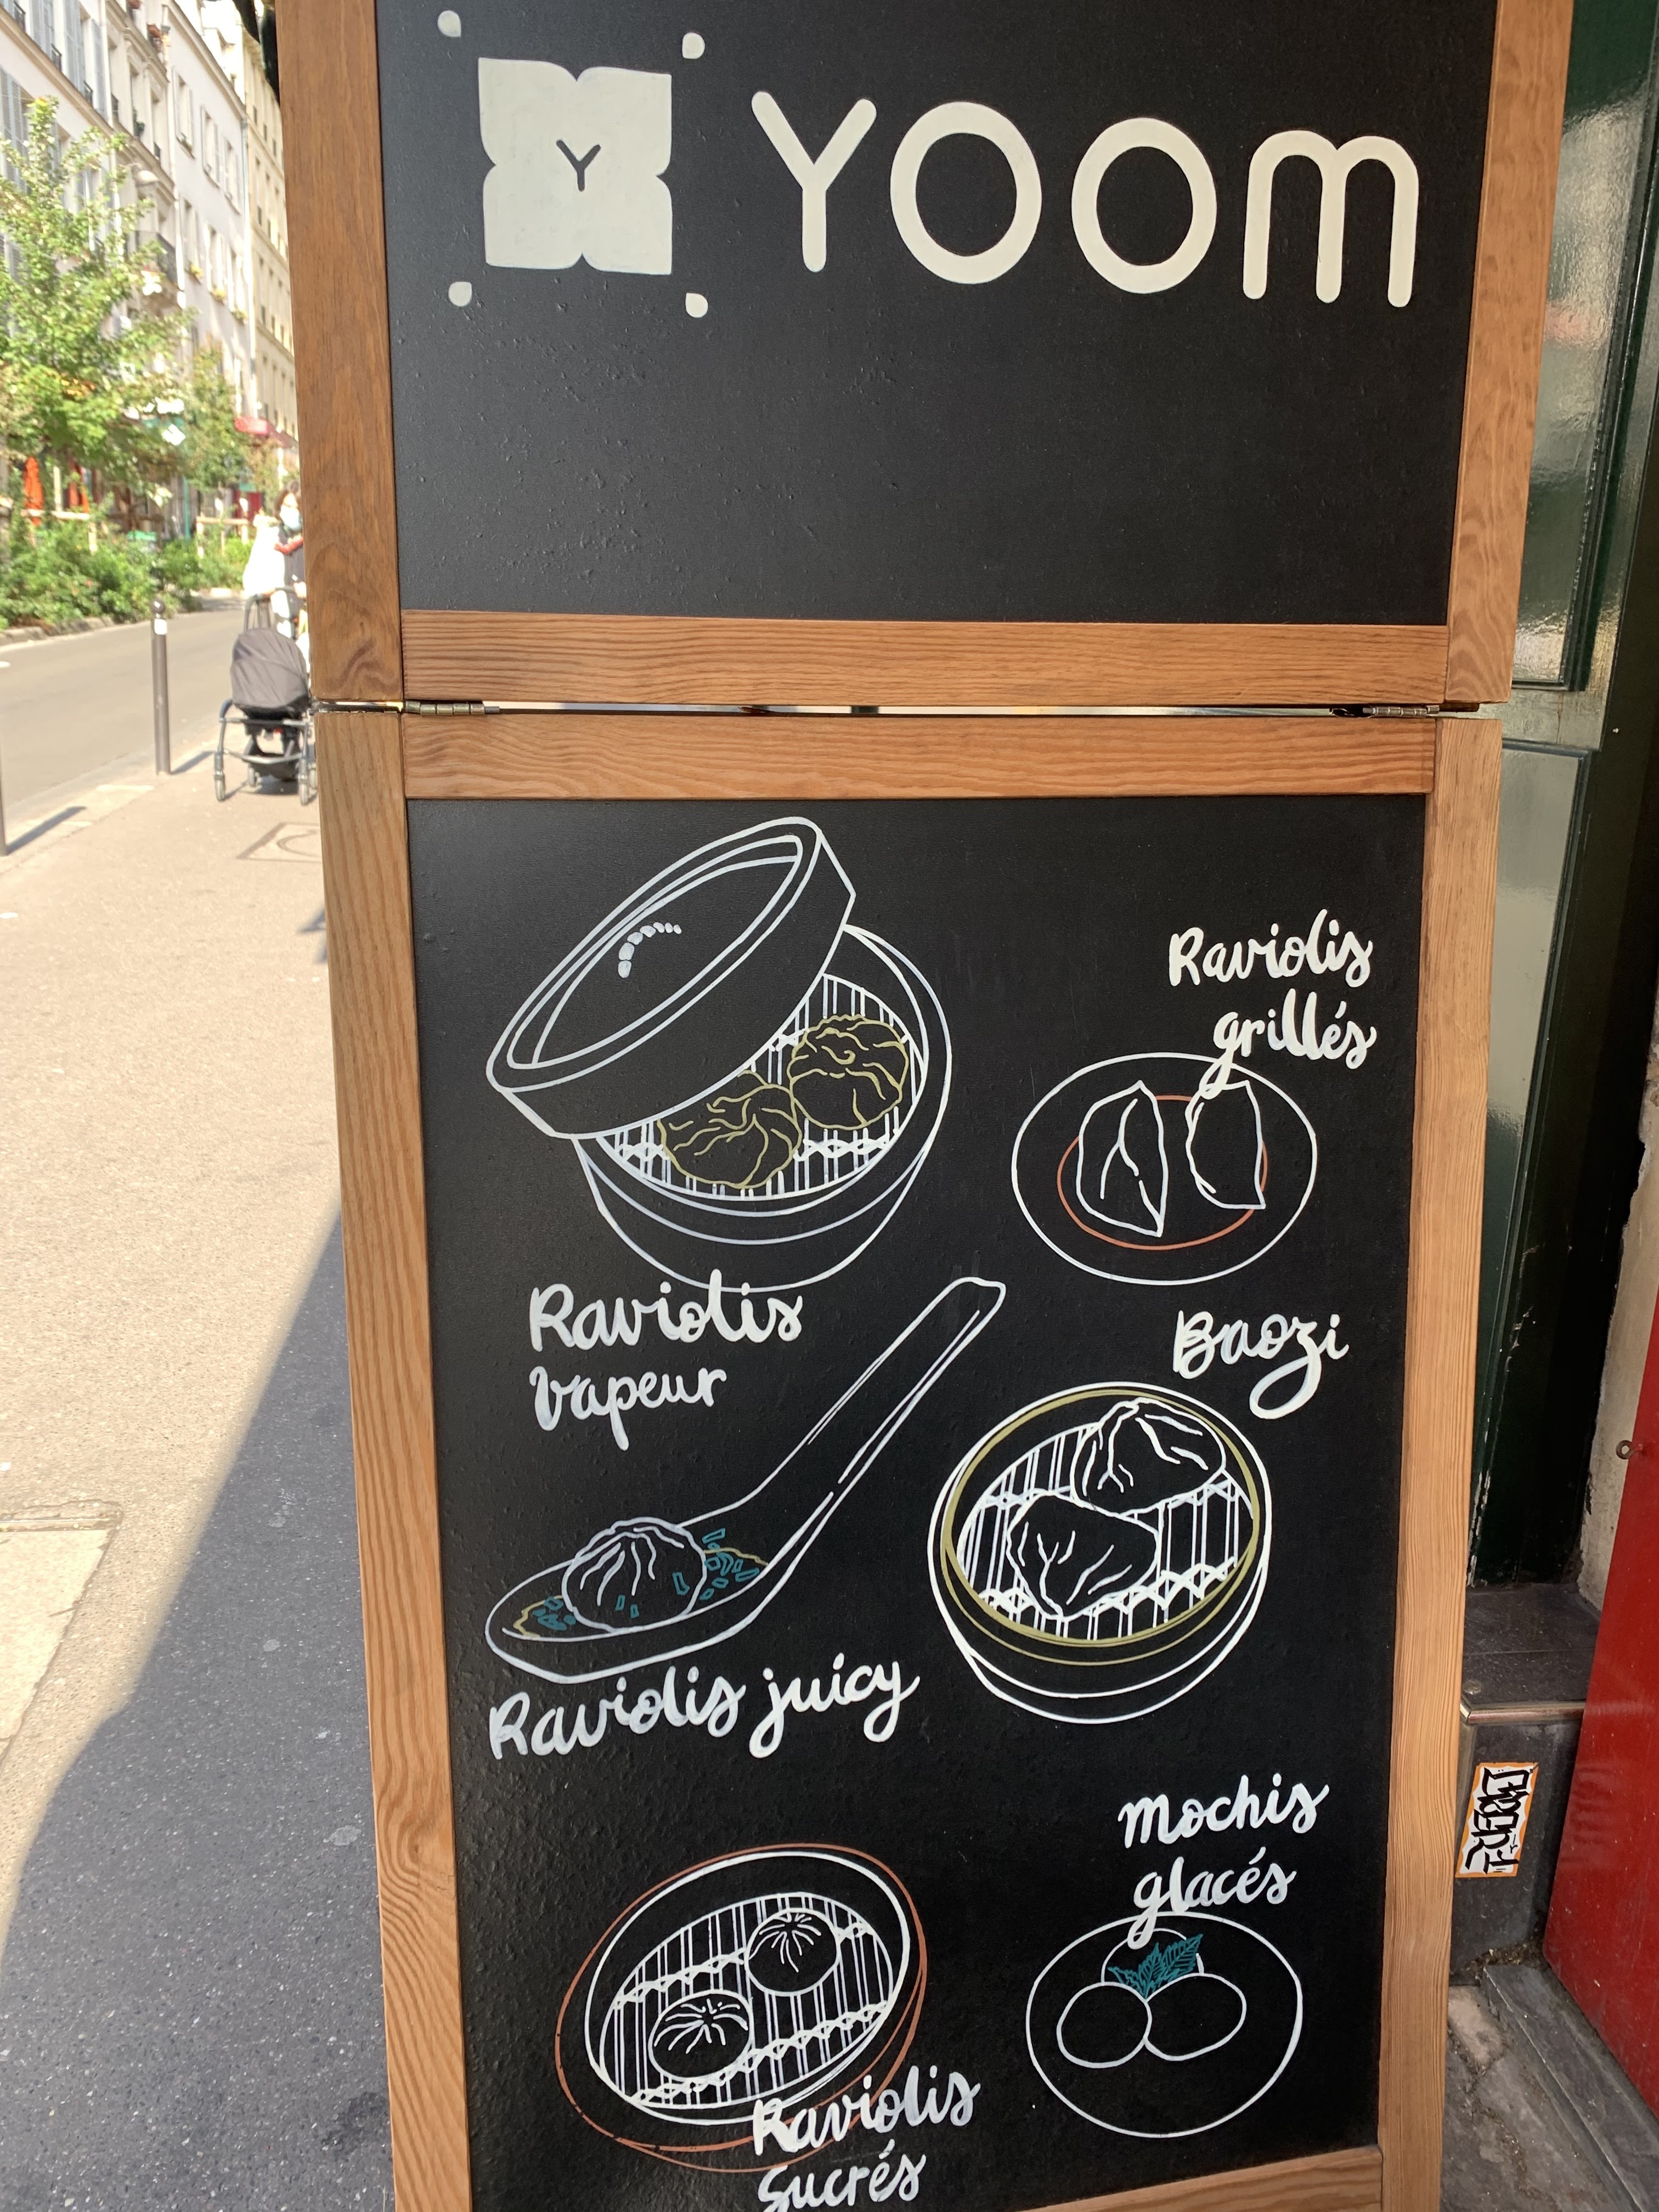 Y
YOOM
Raviolis
grillés
Raviolis
vapeur
Baozi
Raviolis juicy
Mochis
glacés
Raviolis
Sucrés